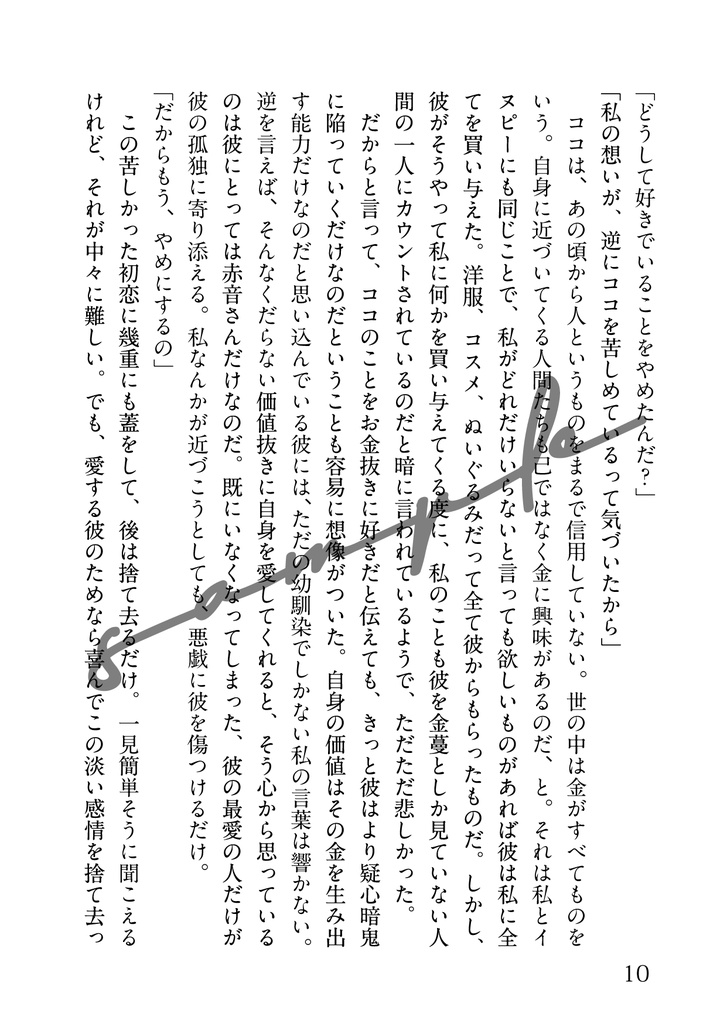 「どうして好きでいることをやめたんだ？」
「私の想いが、逆にココを苦しめているって気づいたから」
　ココは、あの頃から人というものをまるで信用していない。世の中は金がすべてものを
いう。自身に近づいてくる人間たちも己ではなく金に興味があるのだ、と。それは私とイ
ヌピーにも同じことで、私がどれだけいらないと言っても欲しいものがあれば彼は私に全
てを買い与えた。洋服、コスメ、ぬいぐるみだって全て彼からもらったものだ。しかし、
彼がそうやって私に何かを買い与えてくる度に、私のことも彼を金蔓としか見ていない人
間の一人にカウントされているのだと暗に言われているようで、ただただ悲しかった。
　だからと言って、ココのことをお金抜きに好きだと伝えても、きっと彼はより疑心暗鬼
に陥っていくだけなのだということも容易に想像がついた。自身の価値はその金を生み出
す能力だけなのだと思い込んでいる彼には、ただの幼馴染でしかない私の言葉は響かない。
逆を言えば、そんなくだらない価値抜きに自身を愛してくれると、そう心から思っている
のは彼にとっては赤音さんだけなのだ。既にいなくなってしまった、彼の最愛の人だけが
彼の孤独に寄り添える。私なんかが近づこうとしても、悪戯に彼を傷つけるだけ。
「だからもう、やめにするの」
　この苦しかった初恋に幾重にも蓋をして、後は捨て去るだけ。一見簡単そうに聞こえる
けれど、それが中々に難しい。でも、愛する彼のためなら喜んでこの淡い感情を捨て去っ
10
sample